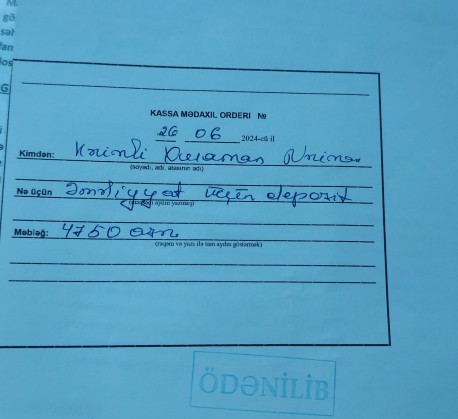 M.
gö
sət
fan
los
G
KASSA MƏDAXİL ORDERİ №
26 06 2024-cü il
Kimdən: Kərimli Qəhrəman
(soyadı, adı, atasının adı)
Nə üçün Əməliyyat üçün depozit
aydın yazmaq)
Məbləğ: 4750 azn
(rəqəm və yazı ilə tam aydın göstərmək)
ÖDƏNİLİB